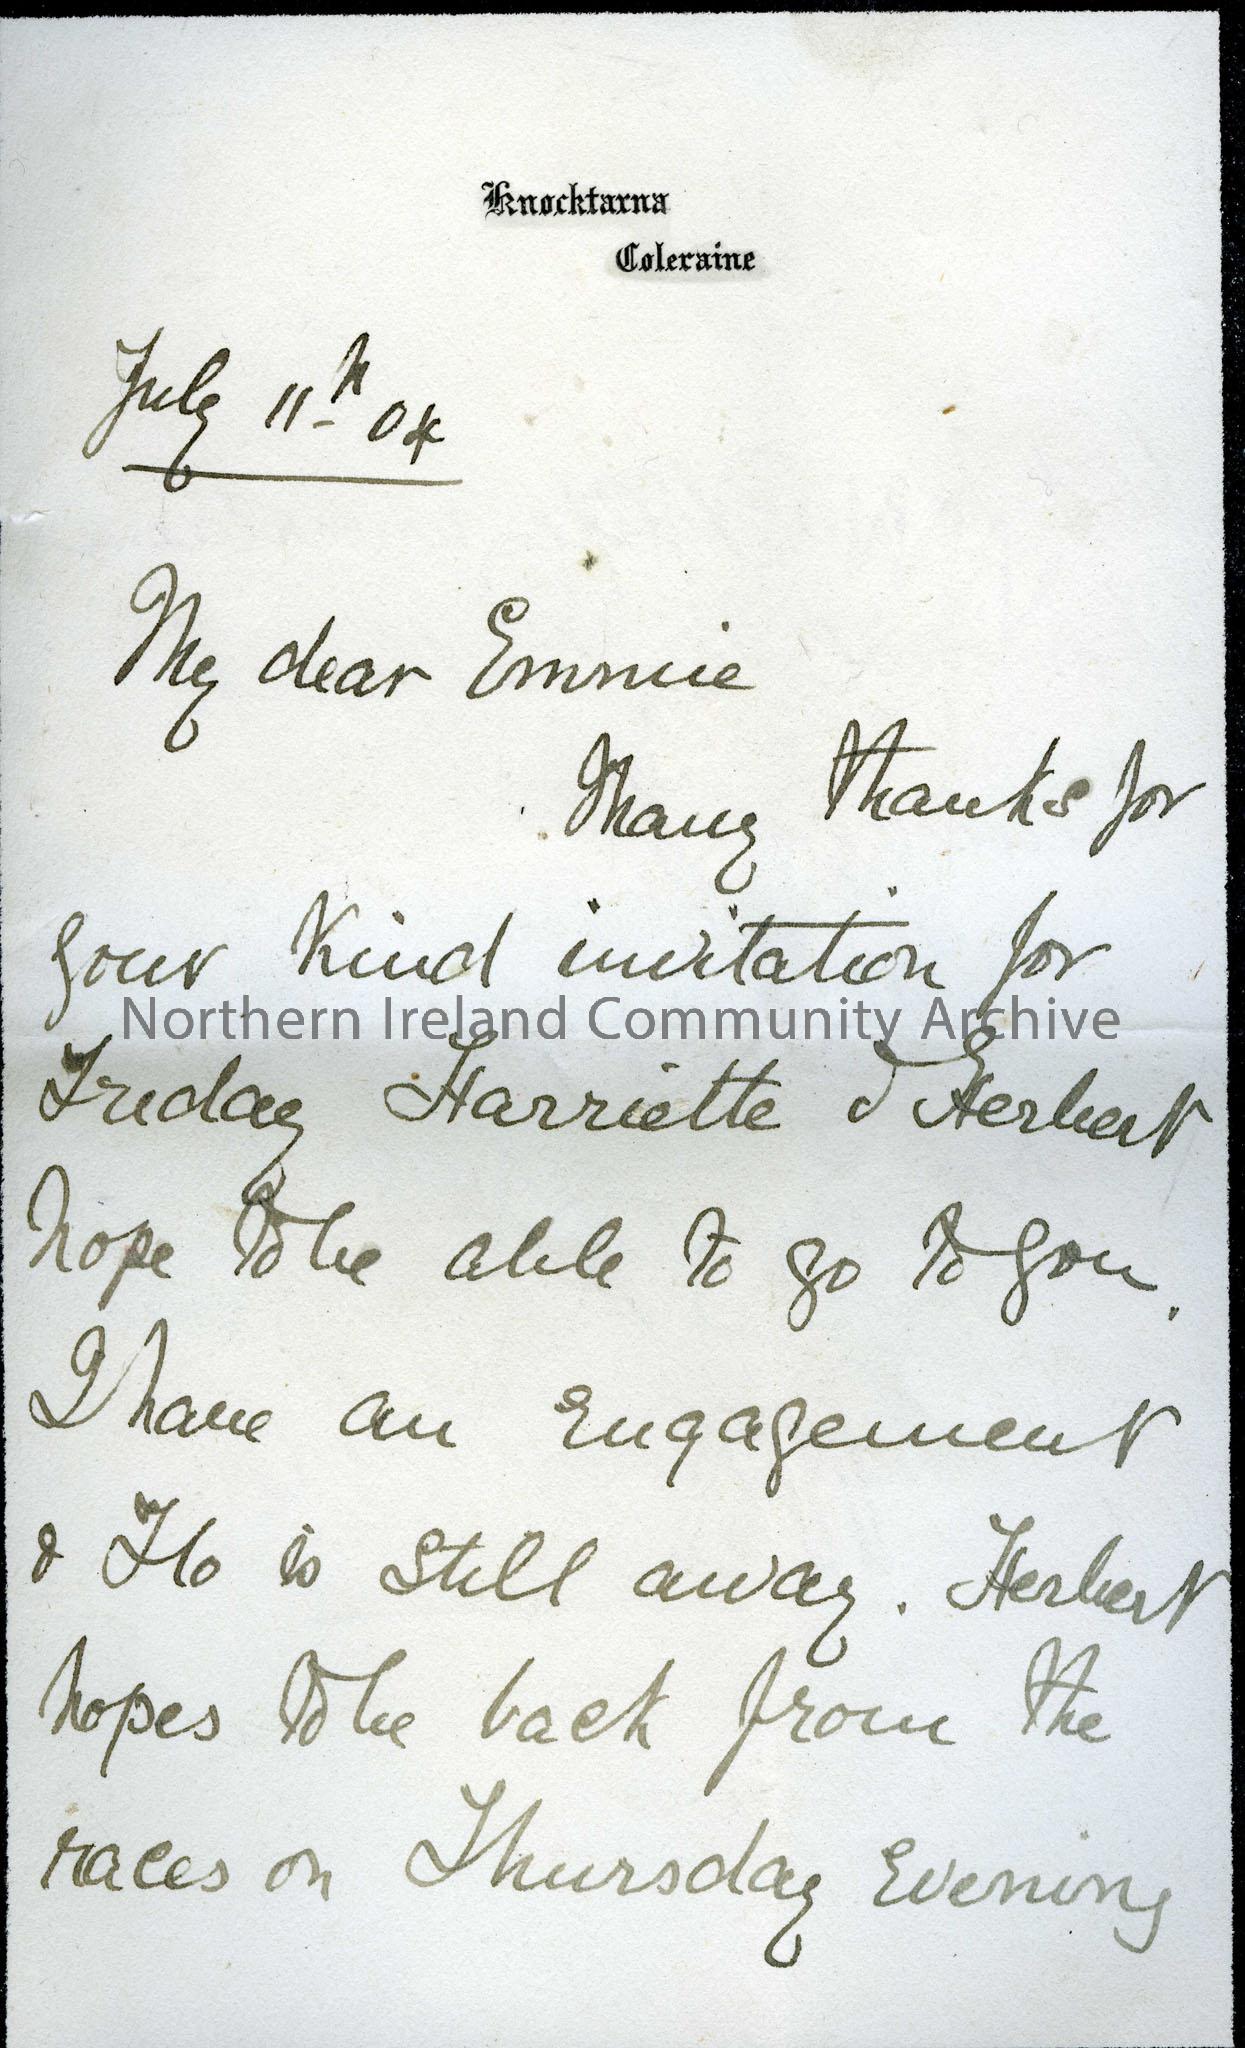 Knocktarna
Coleraine
July 11th 04
My dear Emmie
Many thanks for
your kind invitation for
Northern Ireland Community Archive
Friday Harriette & Herbert
hope to be able to go to you.
I have an engagement
& Flo is still away. Herbert
hopes to be back from the
races on Thursday evening